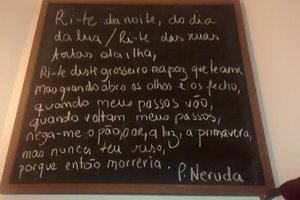 Ri-te da noite, do dia
da lua / Ri-te das ruas
tortas da ilha,
Ri-te deste grosseiro rapaz que te ama,
Mas quando abro os olhos e os fecho,
quando meus passos vão,
quando voltam meus passos,
nega-me o pão, o ar, a luz, a primavera,
mas nunca teu riso,
porque então morreria. P. Neruda